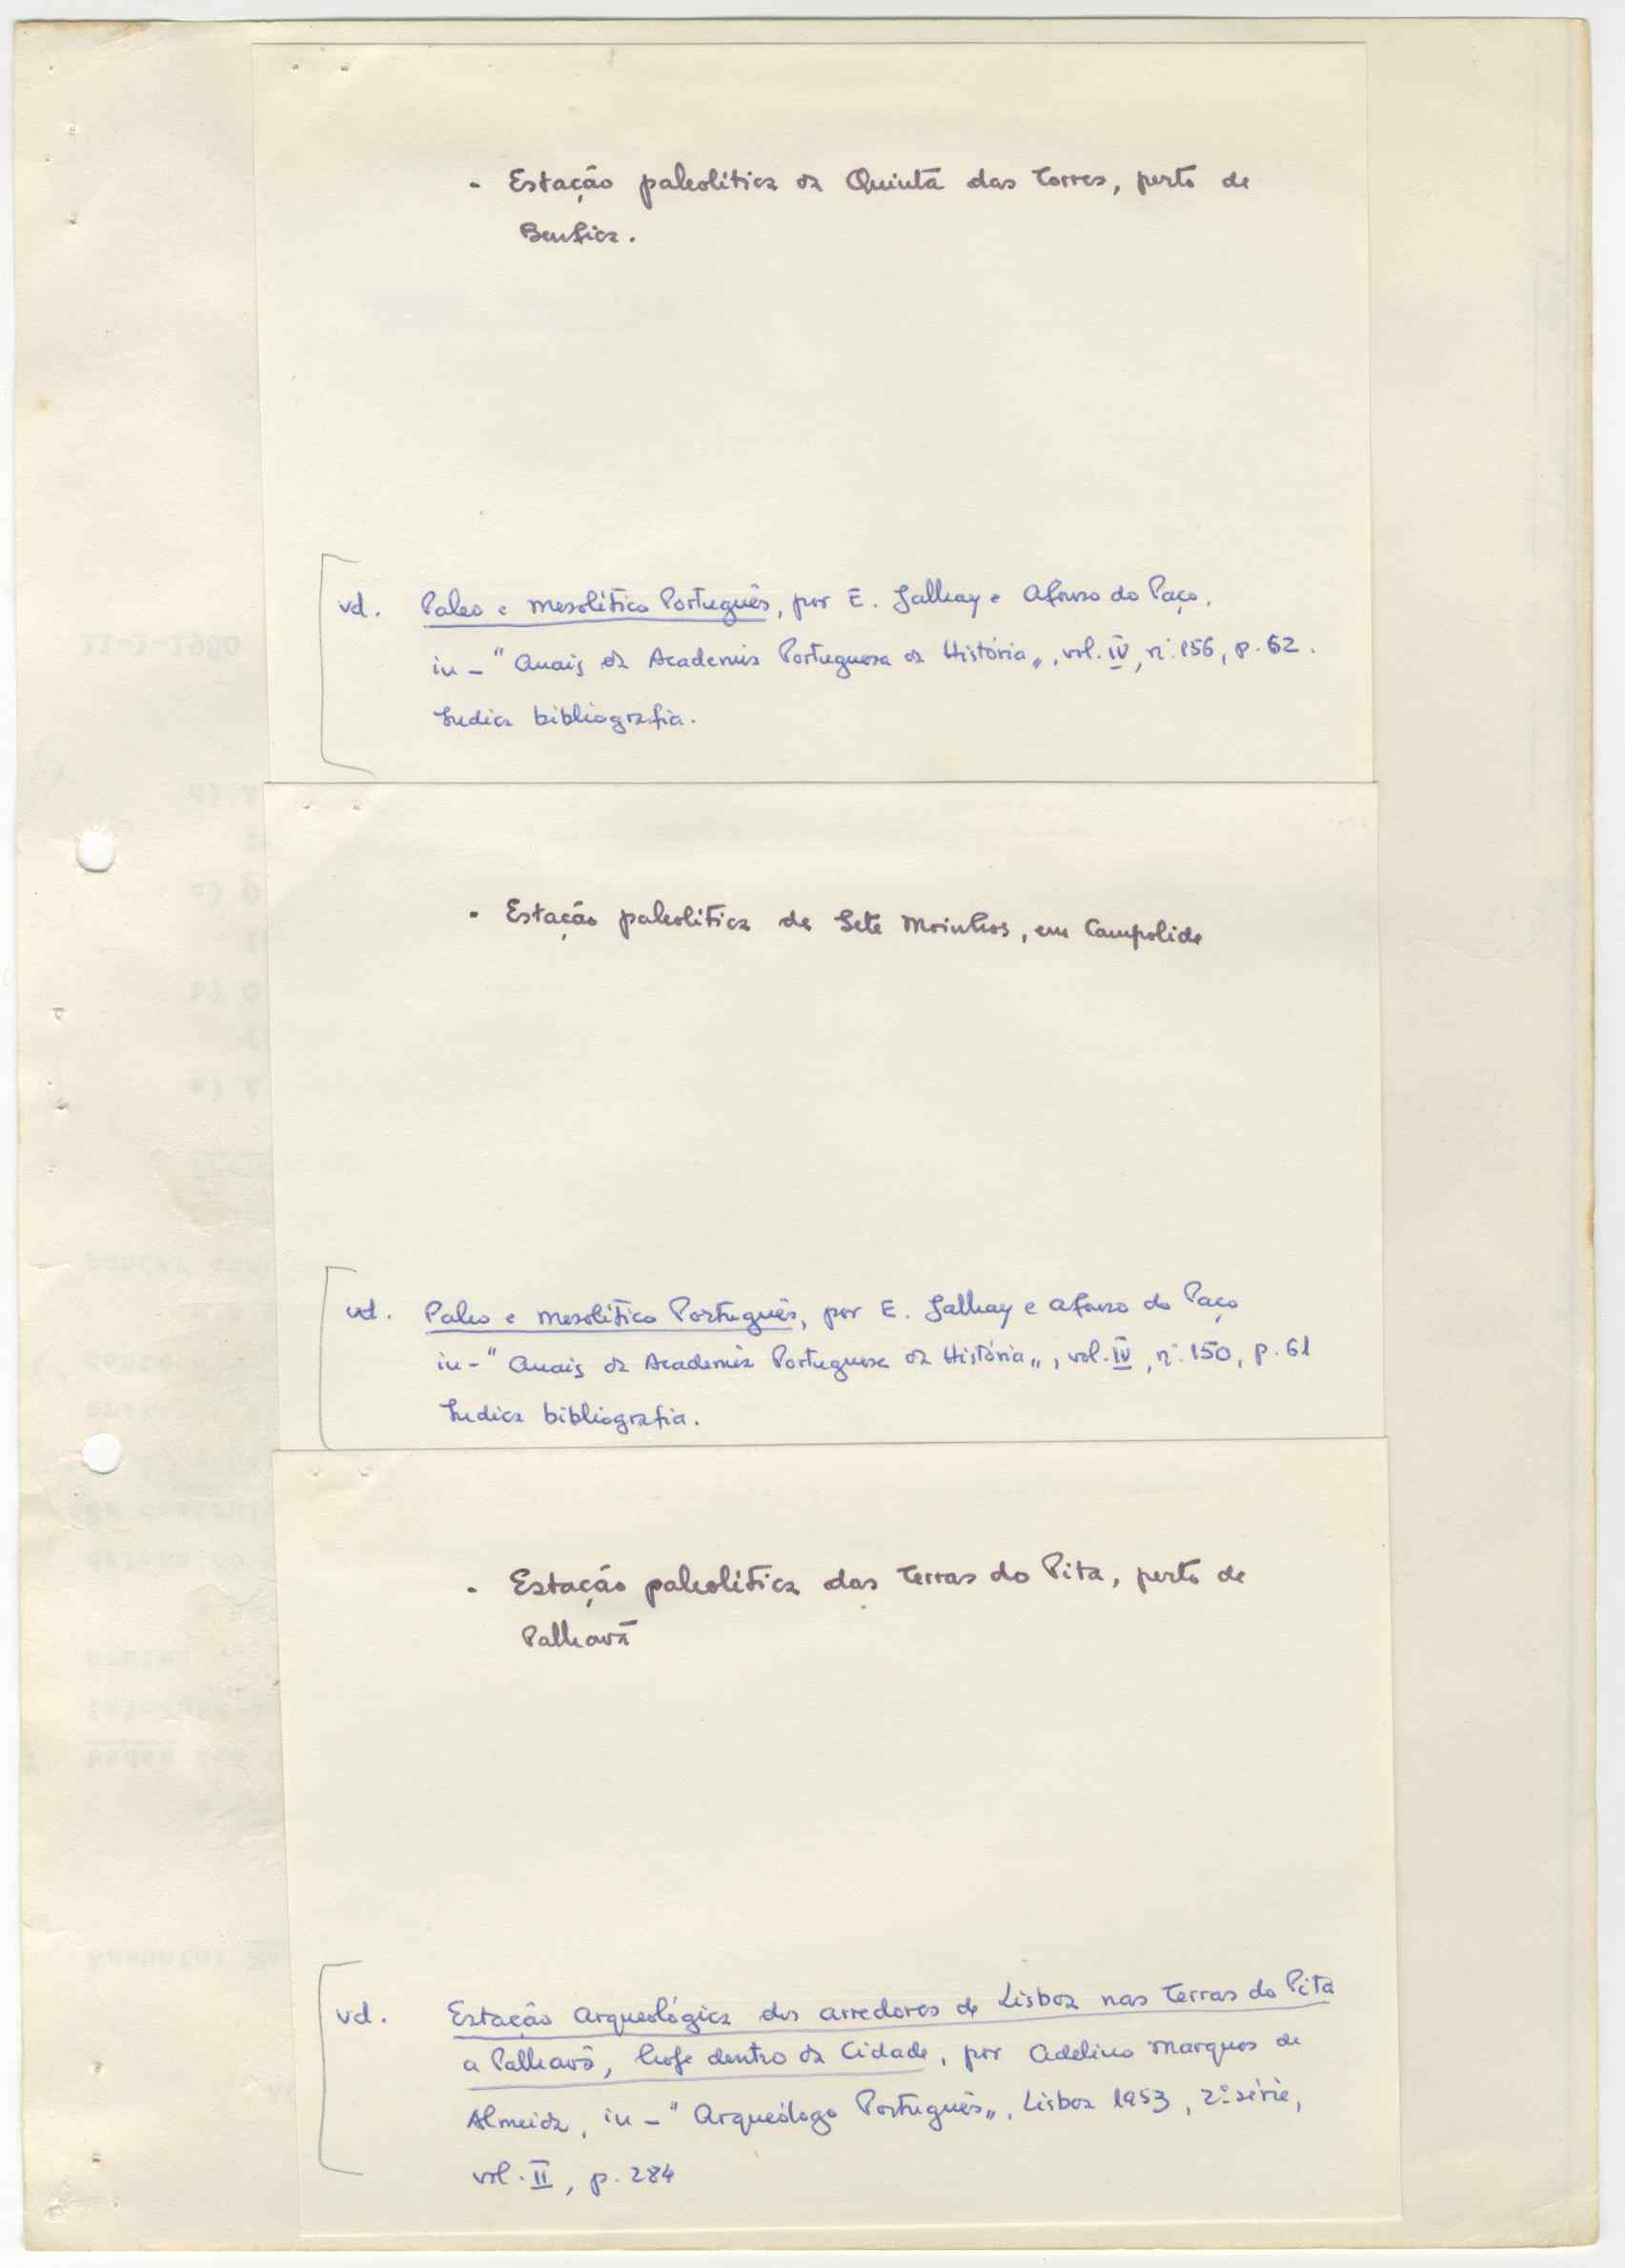 - Estação paleolítica da Quinta das Torres, perto de
Benfica.
vd. Paleo e Mesolítico Português, por E. Jalhay e Afonso do Paço,
in - "Anais da Academia Portuguesa da História", vol. IV, nº 156, p. 62.
Indica bibliografia.
- Estação paleolítica de Sete Moinhos, em Campolide
vd. Paleo e Mesolítico Português, por E. Jalhay e Afonso do Paço
in - "Anais da Academia Portuguesa da História", vol. IV, nº 150, p. 61
Indica bibliografia.
- Estação paleolítica das Terras do Pita, perto de
Palhavã
vd. Estação Arqueológica dos arredores de Lisboa nas Terras do Pita
a Palhavã, hoje dentro da Cidade, por Adelino Marques de
Almeida, in - "Arqueólogo Português", Lisboa 1953, 2ª série,
vol. II, p. 284